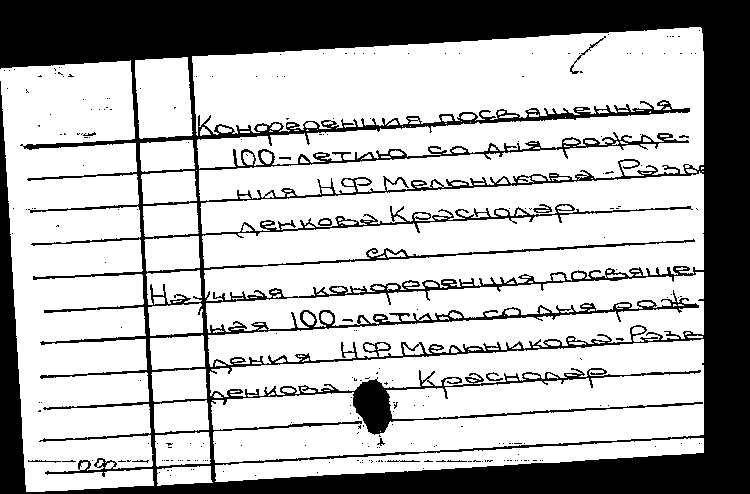 Конференция, посвященная
100-летию со дня рожде-
ния Н.Ф. Мельникова-Разве
денкова. Краснодар.
см.
Научная конференция, посвящен
ная 100-летию со дня рож-
дения Н.Ф. Мельникова-Разв
денкова Краснодар
оф